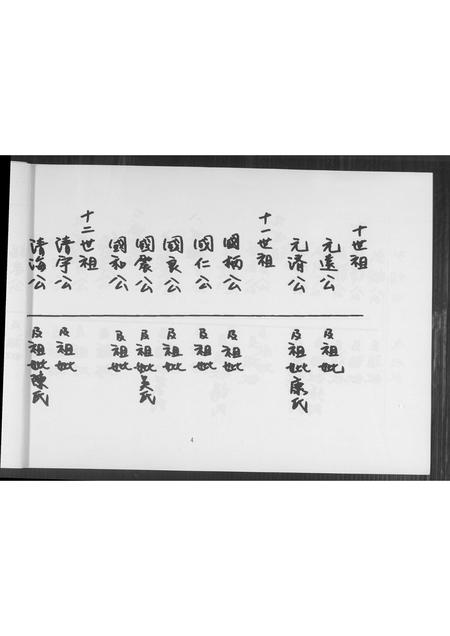 十世祖
元遠公 及祖妣
元濟公 及祖妣康氏
十一世祖
國柄公 及祖妣
國仁公 及祖妣
國良公 及祖妣
國震公 及祖妣吳氏
國和公 及祖妣
十二世祖
清宇公 及祖妣
清海公 及祖妣陳氏
4